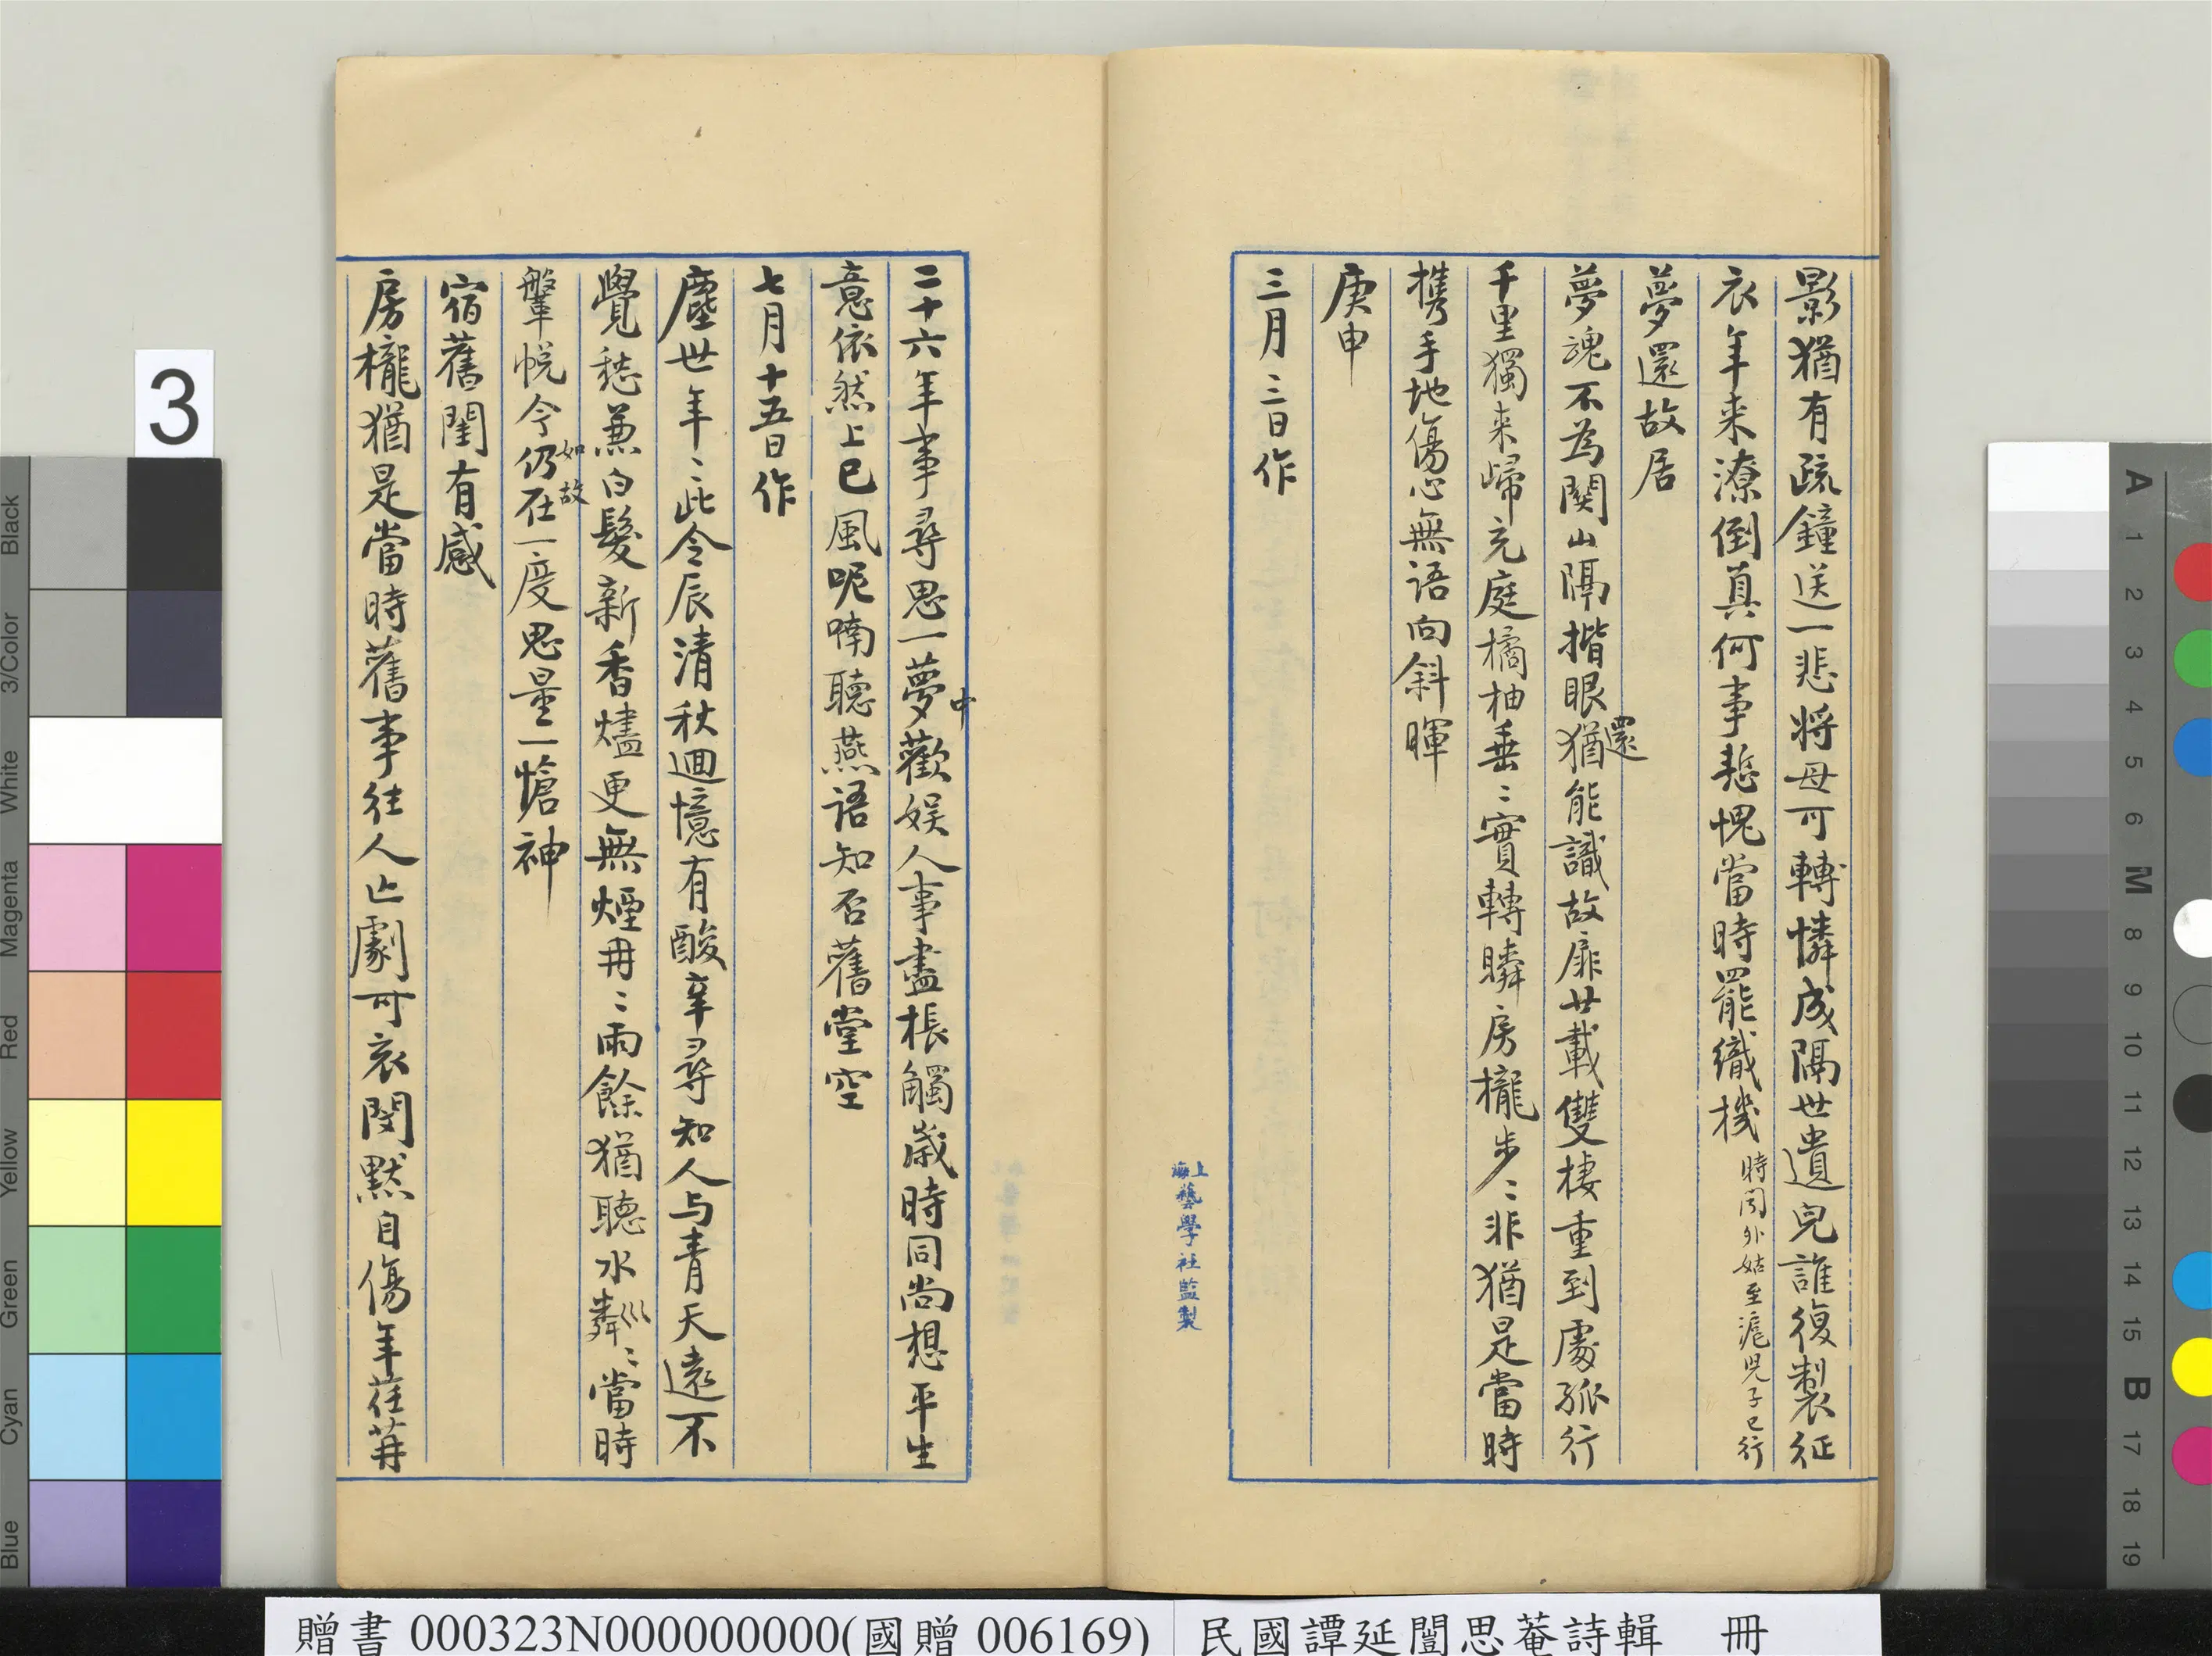 影猶有疏鐘送一悲將母可轉憐成隔世遺兒誰復製征
衣年来潦倒真何事慙愧當時罷織機 時聞外姑至滬兒子已行
夢還故居
夢魂不為関山隔揩眼猶能識故扉廿載雙棲重到處孤行
還
千里獨来歸充庭橘柚垂〻實轉瞬房櫳步〻非猶是當時
携手地傷心無语向斜暉
庚申
三月三日作
上海藝學社監製
二十六年事尋思一夢歡娱人事盡棖觸歲時同尚想平生
中
意依然上巳風呢喃聽燕语知否舊堂空
七月十五日作
塵世年〻此令辰清秋迴憶有酸辛尋知人与青天遠不
覺愁兼白髮新香燼更無煙冉〻雨餘猶聽水粼〻當時
鞶帨今仍在一度思量一愴神
如故
宿舊閨有感
房櫳猶是當時舊事往人亡劇可哀閔默自傷年荏苒
3
Black
3/Color
White
Magenta
Red
Yellow
Green
Cyan
Blue
A
1
2
3
4
5
6
M
8
9
10
11
12
13
14
15
B
17
18
19
贈書 000323N000000000(國贈 006169)
民國譚延闓思菴詩輯 冊